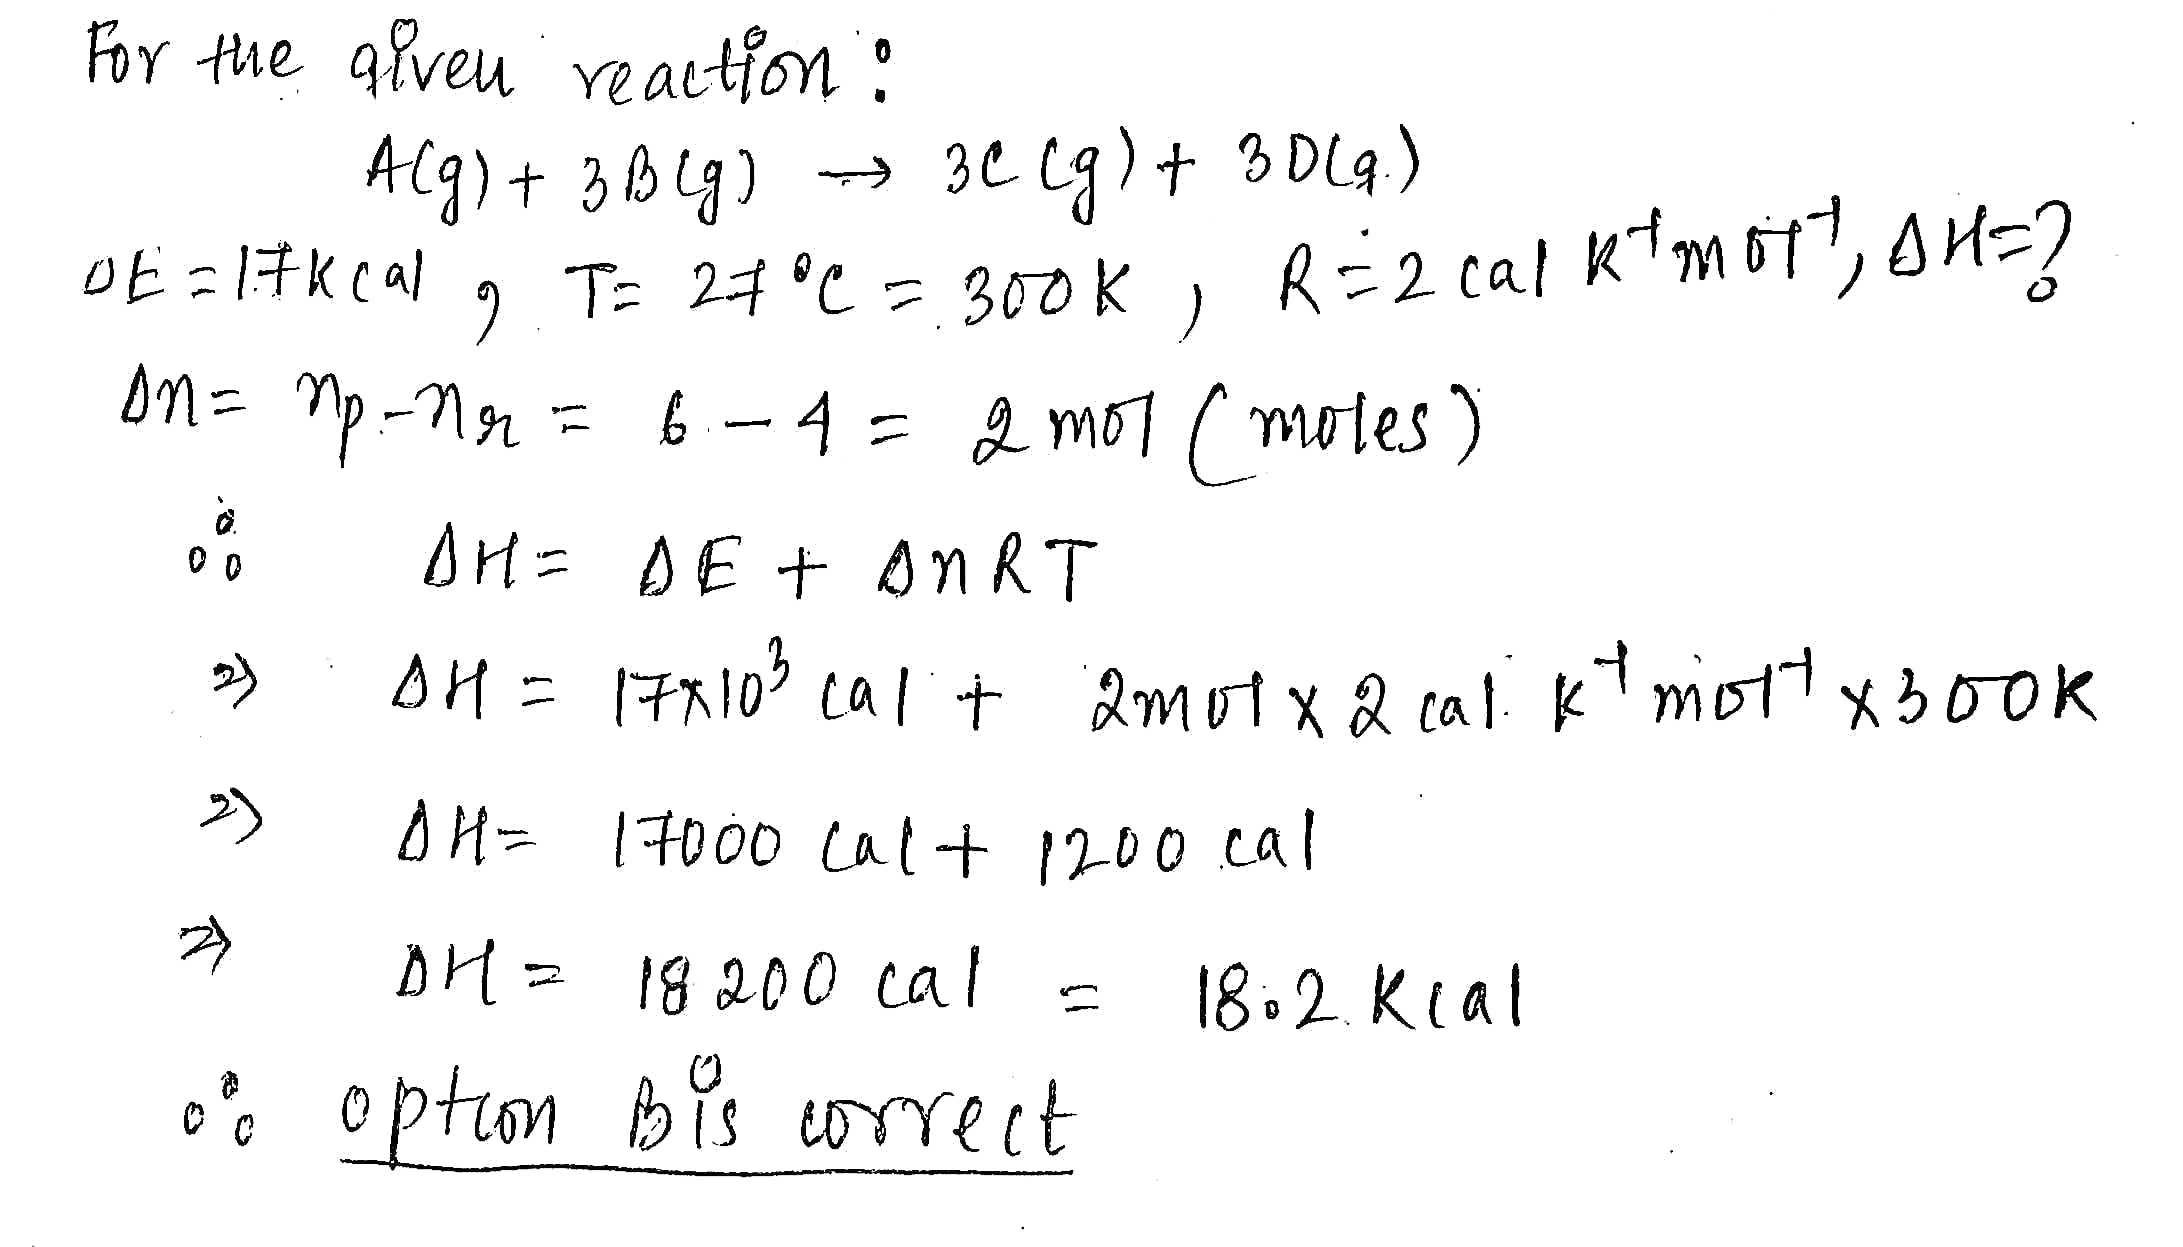 For the given reaction :
A(g) + 3B(g) → 3C(g) + 3D(g)
ΔE = 17 kcal, T = 27 °C = 300 K, R = 2 cal K⁻¹ mol⁻¹, ΔH = ?
Δn = np - nr = 6 - 4 = 2 mol (moles)
∴ ΔH = ΔE + ΔnRT
⇒ ΔH = 17×10³ cal + 2mol x 2 cal K⁻¹ mol⁻¹ x 300K
⇒ ΔH = 17000 cal + 1200 cal
⇒ ΔH = 18200 cal = 18.2 Kcal
∴ option B is correct